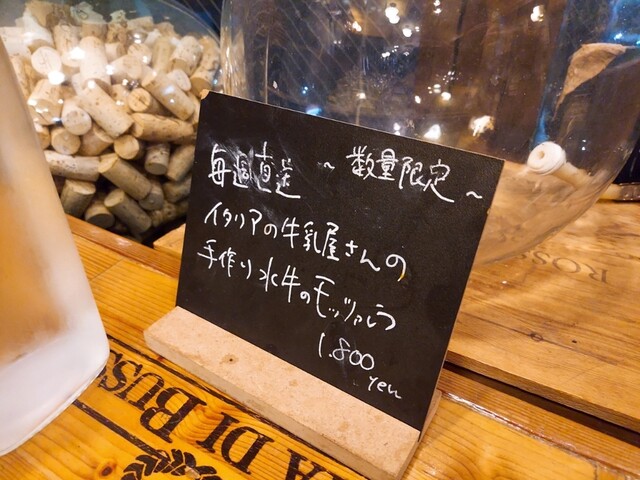 毎週直送 ～数量限定～
イタリアの牛乳屋さんの
手作り水牛のモッツァレラ
1.800
yen
A DI BUSS
ROSS